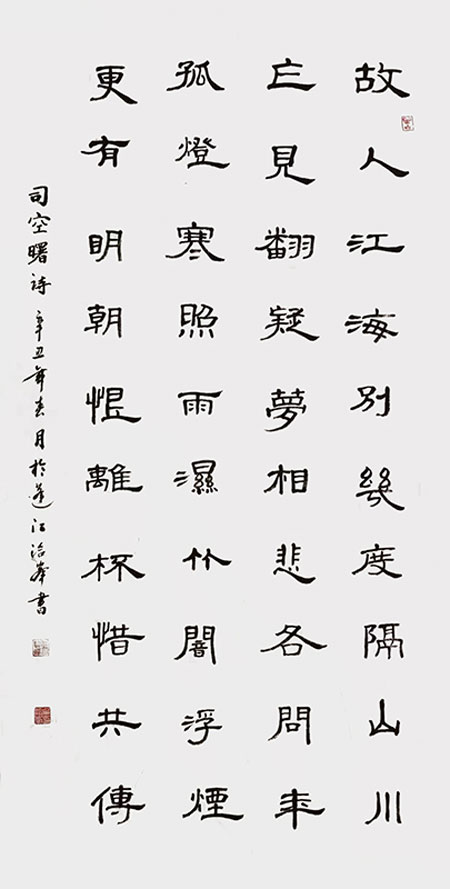 故人江海別幾度隔山川
乍見翻疑夢相悲各問年
孤燈寒照雨濕竹闇浮煙
更有明朝恨離杯惜共傳
司空曙詩 辛丑年春月於蓬江 書